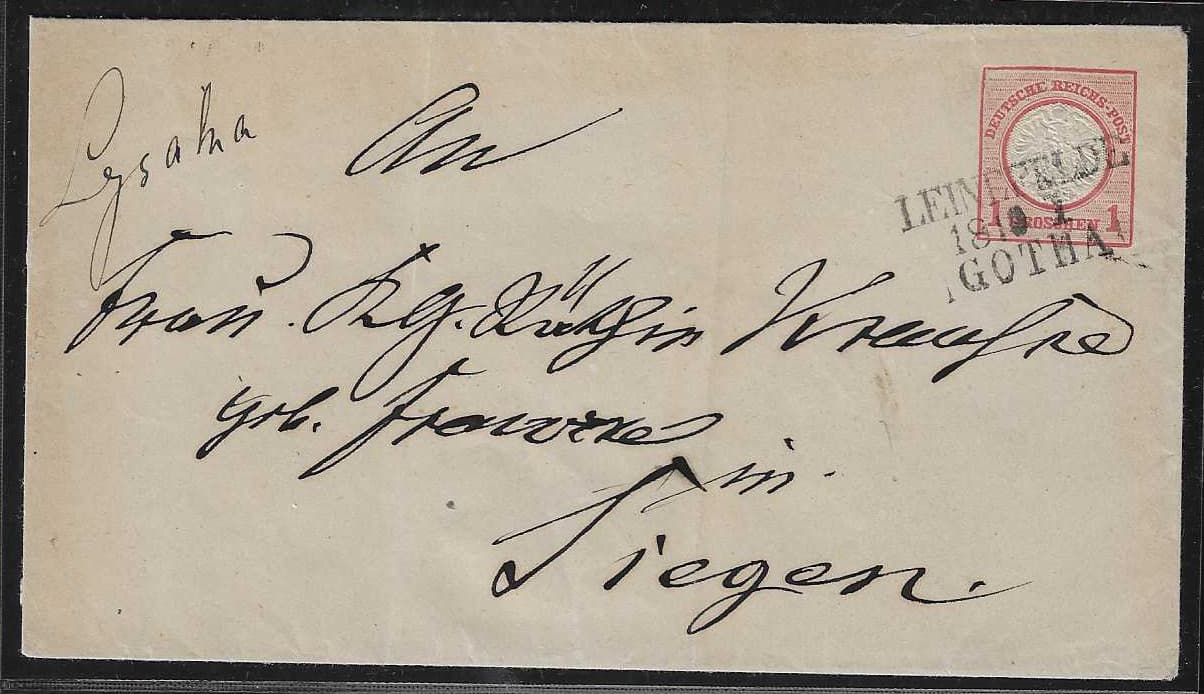 An
Frau Kg. Räthin Krauske
geb. Franzke
in
Siegen.
DEUTSCHE REICHS-POST
1 GROSCHEN 1
LEINEFELDE
GOTHA